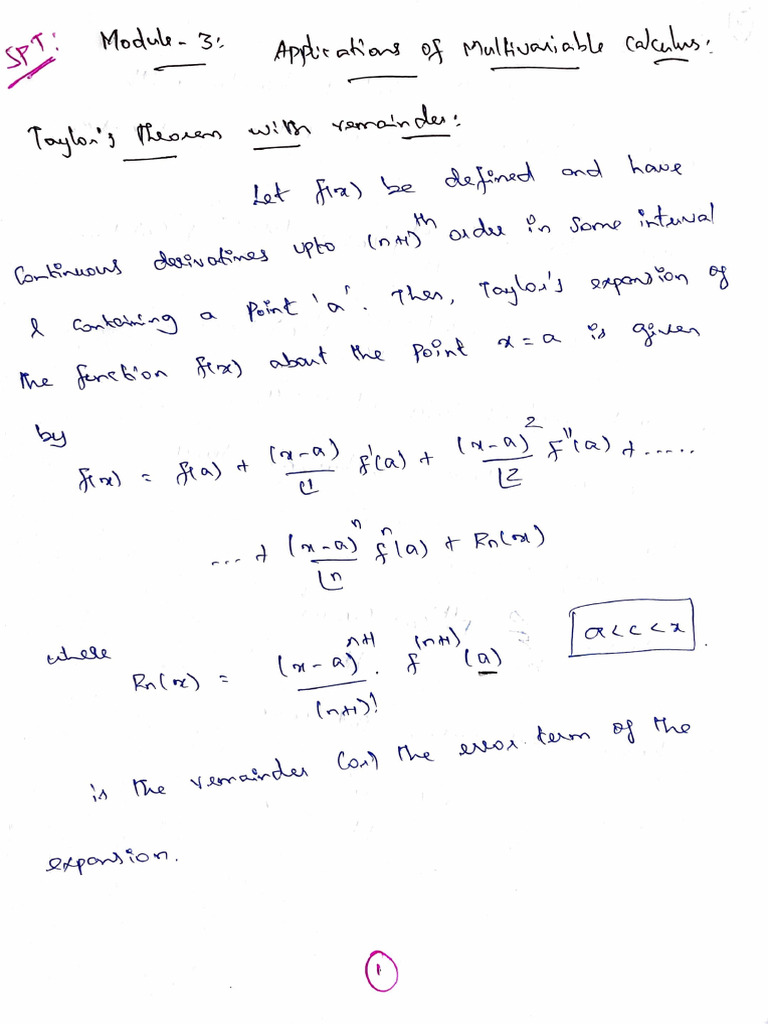 SPT: Module-3: Applications of Multivariable Calculus:
Taylor's Theorem with remainder:
Let f(x) be defined and have
Continuous derivatives upto (n+1)^th order in some interval
I containing a point 'a'. Then, Taylor's expansion of
the function f(x) about the point x = a is given
by
f(x) = f(a) + (x-a)/⌊1 f'(a) + (x-a)^2/⌊2 f''(a) + .....
... + (x-a)^n/⌊n f^n(a) + Rn(x)
where Rn(x) = (x-a)^(n+1)/(n+1)! . f^(n+1) (a) a<c<x.
is the remainder (or) the error term of the
expansion.
1